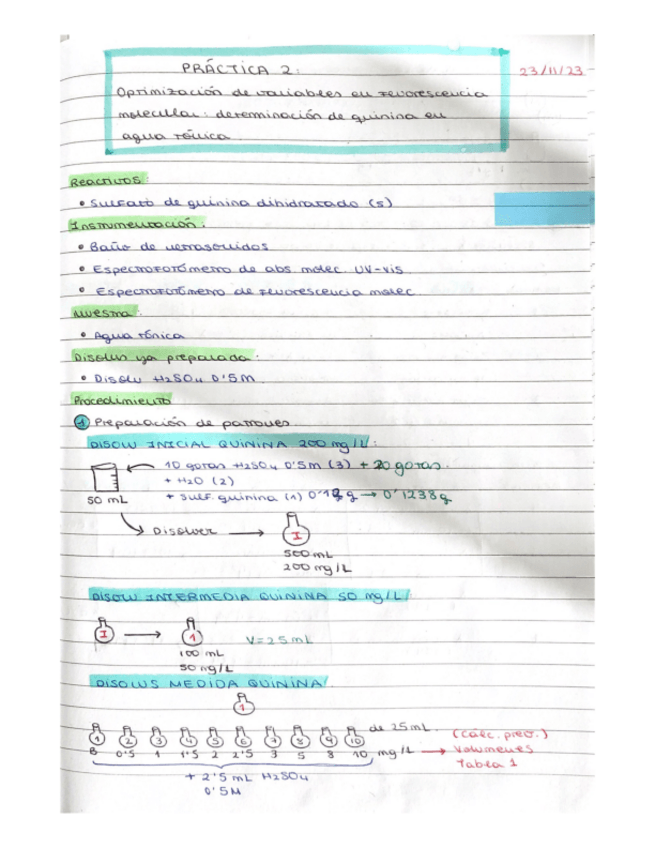 PRÁCTICA 2:
23/11/23
Optimización de variables en fluorescencia
molecular: determinación de quinina en
agua tónica
Reactivos:
• Sulfato de quinina dihidratado (s)
Instrumentación:
• Baño de ultrasonidos
• Espectrofotómetro de abs. molec. UV-vis
• Espectrofotómetro de fluorescencia molec.
Muestra:
• Agua tónica
Disolus ya preparada:
• Disolu H2SO4 0'5M
Procedimiento
1 Preparación de patrones
DISOLU INICIAL QUININA 200 mg/L:
10 gotas H2SO4 0'5M (3) + 20 gotas.
+ H2O (2)
+ sulf. quinina (1) g → 0'1238g
50 mL
Disolver → I
500 mL
200 mg/L
DISOLU INTERMEDIA QUININA 50 mg/L:
I → 1 V=25mL
100 mL
50 mg/L
DISOLUS MEDIDA QUININA:
1
1 2 3 4 5 6 7 8 9 10 de 25mL.
B 0'5 1 1'5 2 2'5 3 5 8 10 mg/L → (calc. prev.)
Volumenes
Tabla 1
+ 2'5 mL H2SO4
0'5M